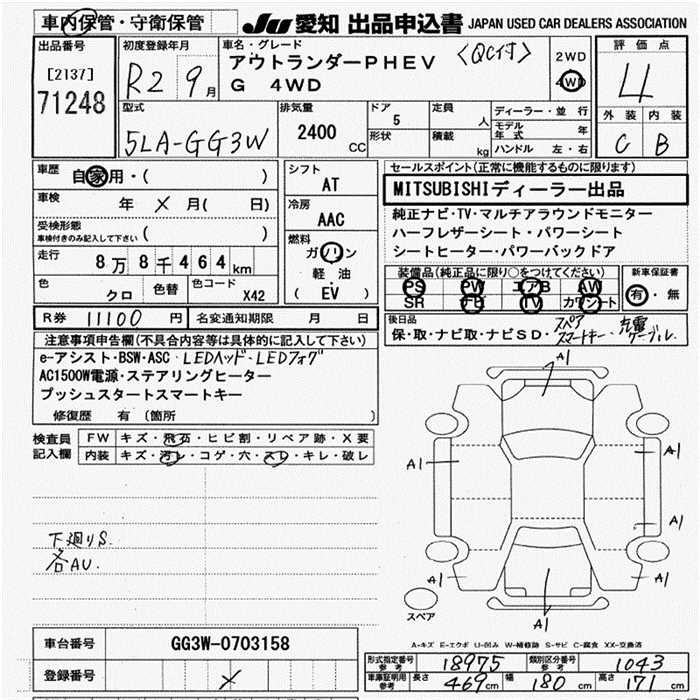 車内保管・守衛保管
JU 愛知 出品申込書 JAPAN USED CAR DEALERS ASSOCIATION
出品番号
[2137]
71248
初度登録年月
R2 9月
車名・グレード
アウトランダーPHEV <QC付>
G 4WD
2WD
4WD
評価点
4
外装 内装
C B
型式
5LA-GG3W
排気量
2400 CC
ドア
5
形状
定員
人
積載
kg
ディーラー・並行
モデル年式 年
ハンドル 左・右
車歴
自家用・( )
車検 年 メ 月( 日)
受検形態
車検付きのみ記入して下さい ( )
走行 8万8千464km
色 クロ
色替
色コード X42
シフト
AT
冷房
AAC
燃料
ガソリン
軽・油
( EV )
セールスポイント(正常に機能するものに限ります)
MITSUBISHIディーラー出品
純正ナビ・TV・マルチアラウンドモニター
ハーフレザーシート・パワーシート
シートヒーター・パワーバックドア
装備品(純正品に限り○をつけてください)
PS PW エアB AW
SR ナビ TV カワシート
新車保証書
有・無
R券 11100円
名変通知期限 月 日
後日品
保・取・ナビ取・ナビSD・スペアスマートキー・充電ケーブル.
注意事項申告欄(不具合内容等は具体的に記入して下さい)
e-アシスト・BSW・ASC・LEDヘッド・LEDフォグ
AC1500W電源・ステアリングヒーター
プッシュスタートスマートキー
修復歴 有 (箇所 )
検査員記入欄
FW キズ・飛石・ヒビ割・リペア跡・X要
内装 キズ・汚レ・コゲ・穴・スレ・キレ・破レ
下廻りS.
各AU.
A1
A1
A1
A1
A1
A1
A1
スペア
A-キズ E-エクボ U-凹み W-補修跡 S-サビ C-腐食 XX-交換済
車台番号 GG3W-0703158
登録番号 メ
形式指定番号 参考 18975
類別区分番号 参考 1043
車庫証明用 参考 長さ 469cm 幅 180cm 高さ 171cm